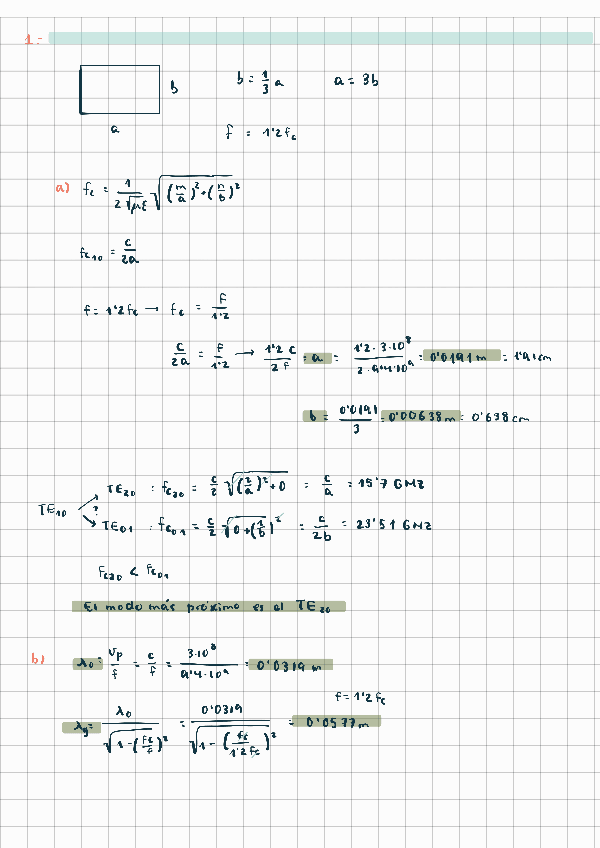 1:-
b   b = 1/3 a   a = 3b
a   f = 1'2 fc
a) fc = 1/(2√με) √((m/a)² + (n/b)²)
fc10 = c/2a
f = 1'2 fc → fc = f/1'2
c/2a = f/1'2 → 1'2 c/2f = a = 1'2 · 3·10⁸/2 · 9'4·10⁹ = 0'0191 m = 1'91 cm
b = 0'0191/3 = 0'00638 m = 0'638 cm
TE20 : fc20 = c/2 √((2/a)² + 0) = c/a = 15'7 GHz
TE10 ?
TE01 : fc01 = c/2 √(0 + (1/b)²) = c/2b = 23'51 GHz
fc20 < fc01
El modo más próximo es el TE20
b) λ0 = Vp/f = c/f = 3·10⁸/9'4·10⁹ = 0'0319 m
f = 1'2 fc
λg = λ0/√(1-(fc/f)²) = 0'0319/√(1-(fc/1'2 fc)²) = 0'0577 m